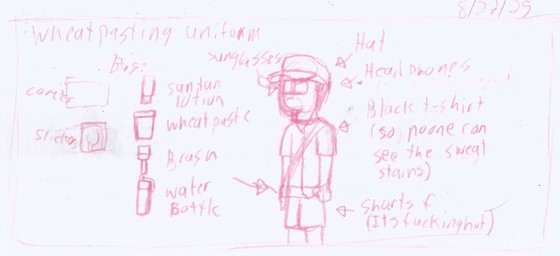 8/22/25
Wheatpasting uniform
Bag:
comics
stickers
suntan
lotion
wheatpaste
Brush
water
Bottle
sunglasses
Hat
Headphones
Black t-shirt
(so noone can
see the sweat
stains)
shorts
(Its fucking hot)